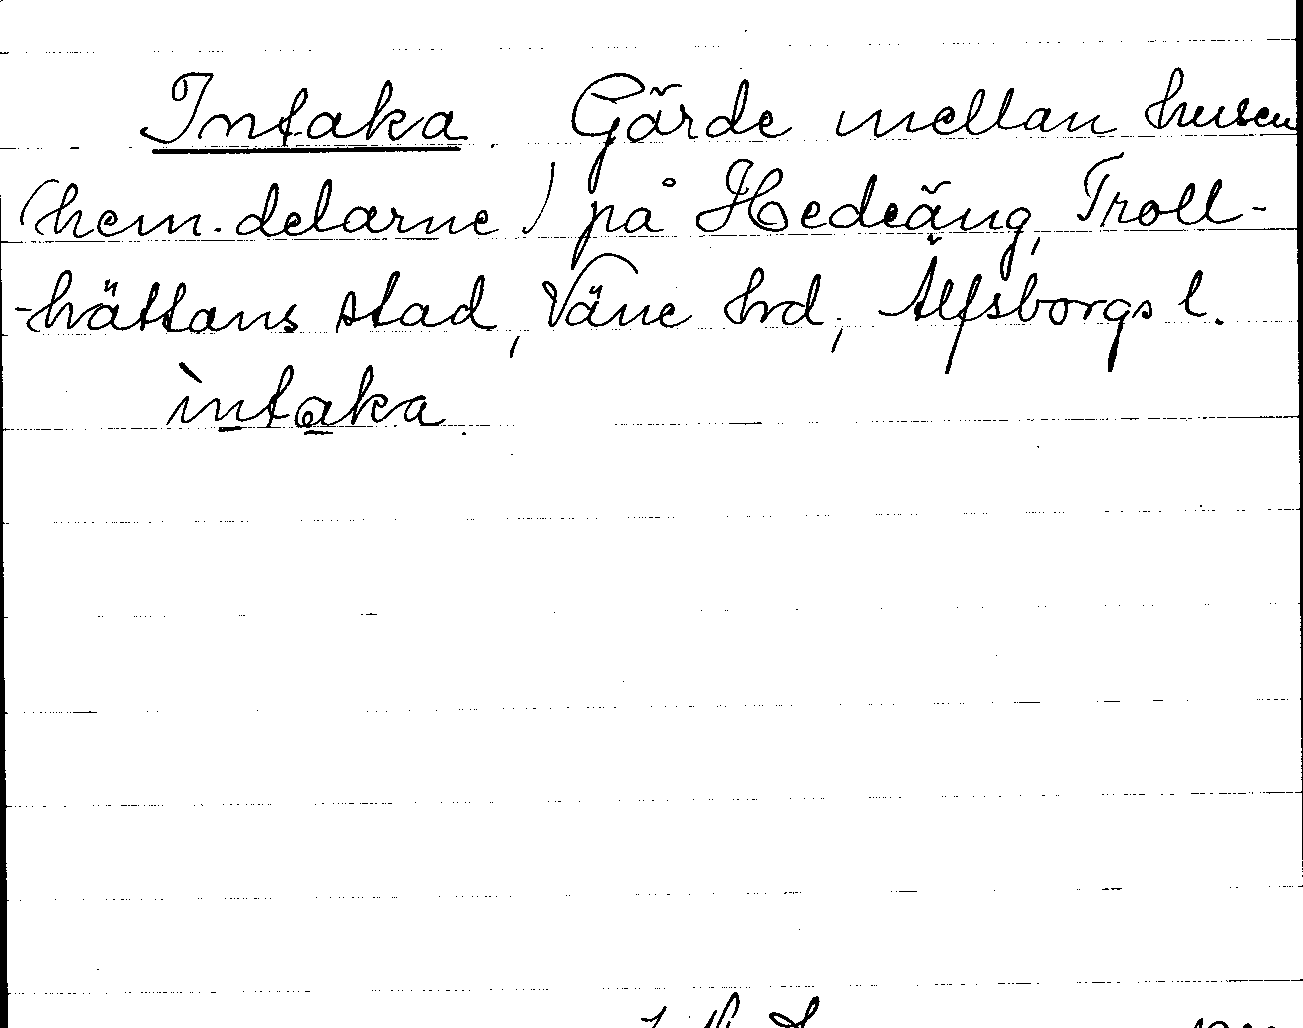 Intaka. Gärde mellan husen
(hem.delarne) på Hedeäng, Troll-
-hättans stad, Väne hrd, Älfsborgs l.
ìntaka.